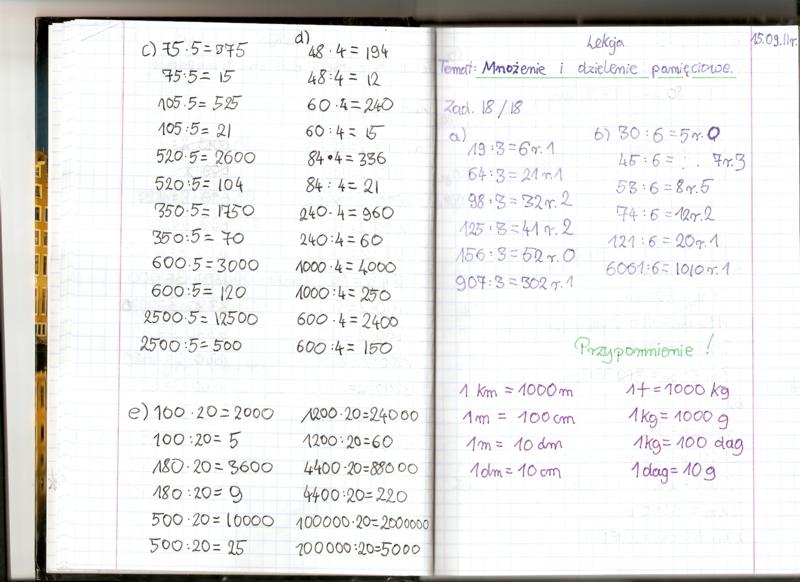 c) 75·5=375
75:5=15
105·5=525
105:5=21
520·5=2600
520:5=104
350·5=1750
350:5=70
600·5=3000
600:5=120
2500·5=12500
2500:5=500
d)
48·4=194
48:4=12
60·4=240
60:4=15
84·4=336
84:4=21
240·4=960
240:4=60
1000·4=4000
1000:4=250
600·4=2400
600:4=150
e) 100·20=2000
100:20=5
180·20=3600
180:20=9
500·20=10000
500:20=25
1200·20=24000
1200:20=60
4400·20=88000
4400:20=220
100000·20=2000000
100000:20=5000
Lekcja
15.09.11r.
Temat: Mnożenie i dzielenie pamięciowe.
Zad. 18/18
a)
19:3=6r.1
64:3=21r.1
98:3=32r.2
125:3=41r.2
156:3=52r.0
907:3=302r.1
b) 30:6=5r.0
45:6=.. 7r.3
53:6=8r.5
74:6=12r.2
121:6=20r.1
6061:6=1010r.1
Przypomnienie!
1km=1000m
1m=100cm
1m=10dm
1dm=10cm
1t=1000kg
1kg=1000g
1kg=100dag
1dag=10g